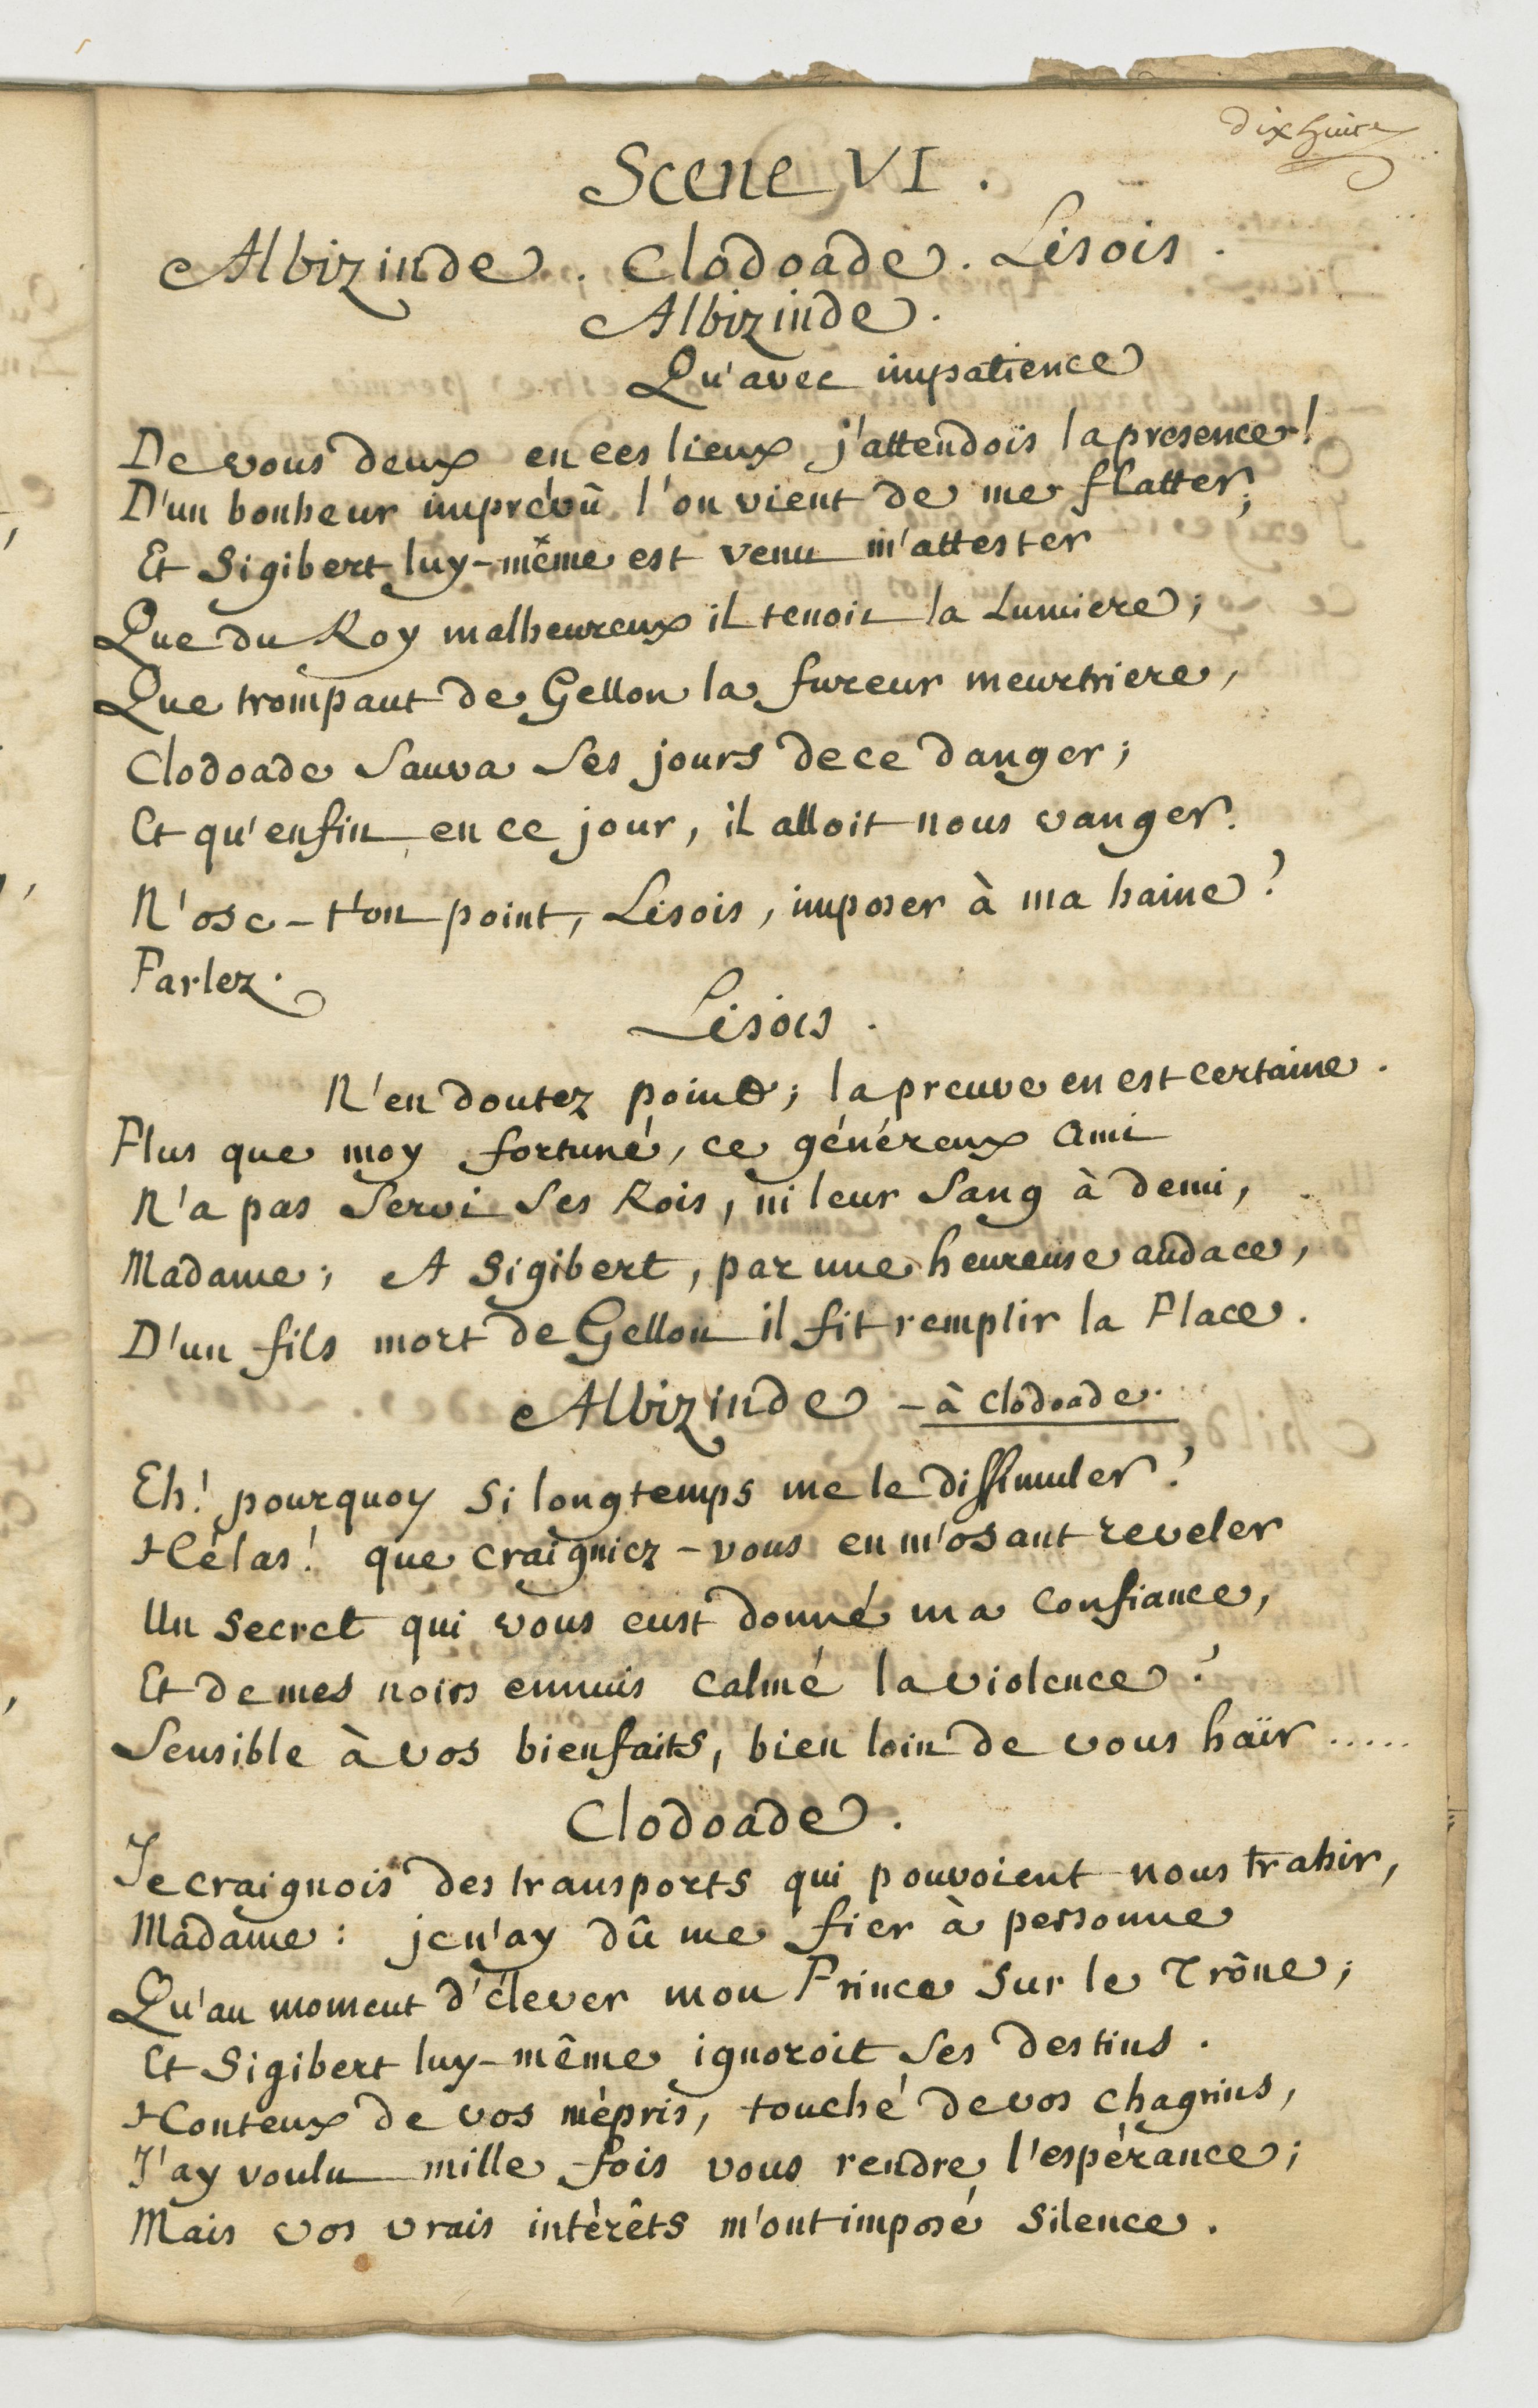 dix huite
Scene VI.
Albizinde. Clodoade. Lisois.
Albizinde.
Qu'avec impatience
De vous deux en ces lieux j'attendois la presence!
D'un bonheur imprévû l'on vient de me flatter;
Et Sigibert luy-même est venu m'attester
Que du Roy malheureux il tenoit la Lumiere;
Que trompant de Gellon la fureur meurtriere,
Clodoade Sauva Ses jours de ce danger;
Et qu'enfin en ce jour, il alloit nous vanger.
N'ose-t'on point, Lisois, imposer à ma haine?
Parlez.
Lisois.
N'en doutez point; la preuve en est certaine.
Plus que moy fortuné, ce généreux Ami
N'a pas Servi Ses Rois, ni leur Sang à demi,
Madame; A Sigibert, par une heureuse audace,
D'un fils mort de Gellon il fit remplir la Place.
Albizinde - à Clodoade.
Eh! pourquoy Si longtemps me le dissimuler?
Hélas! que craigniez-vous en m'osant reveler
Un Secret qui vous eust donné ma Confiance,
Et de mes noirs ennuis calmé la violence?
Sensible à vos bienfaits, bien loin de vous haïr .....
Clodoade.
Je craignois des transports qui pouvoient nous trahir,
Madame: je n'ay dû me fier à personne
Qu'au moment d'élever mon Prince Sur le Trône;
Et Sigibert luy-même ignoroit Ses destins.
Honteux de vos mépris, touché de vos chagrins,
J'ay voulu mille fois vous rendre l'espérance;
Mais vos vrais intérêts m'ont imposé Silence.